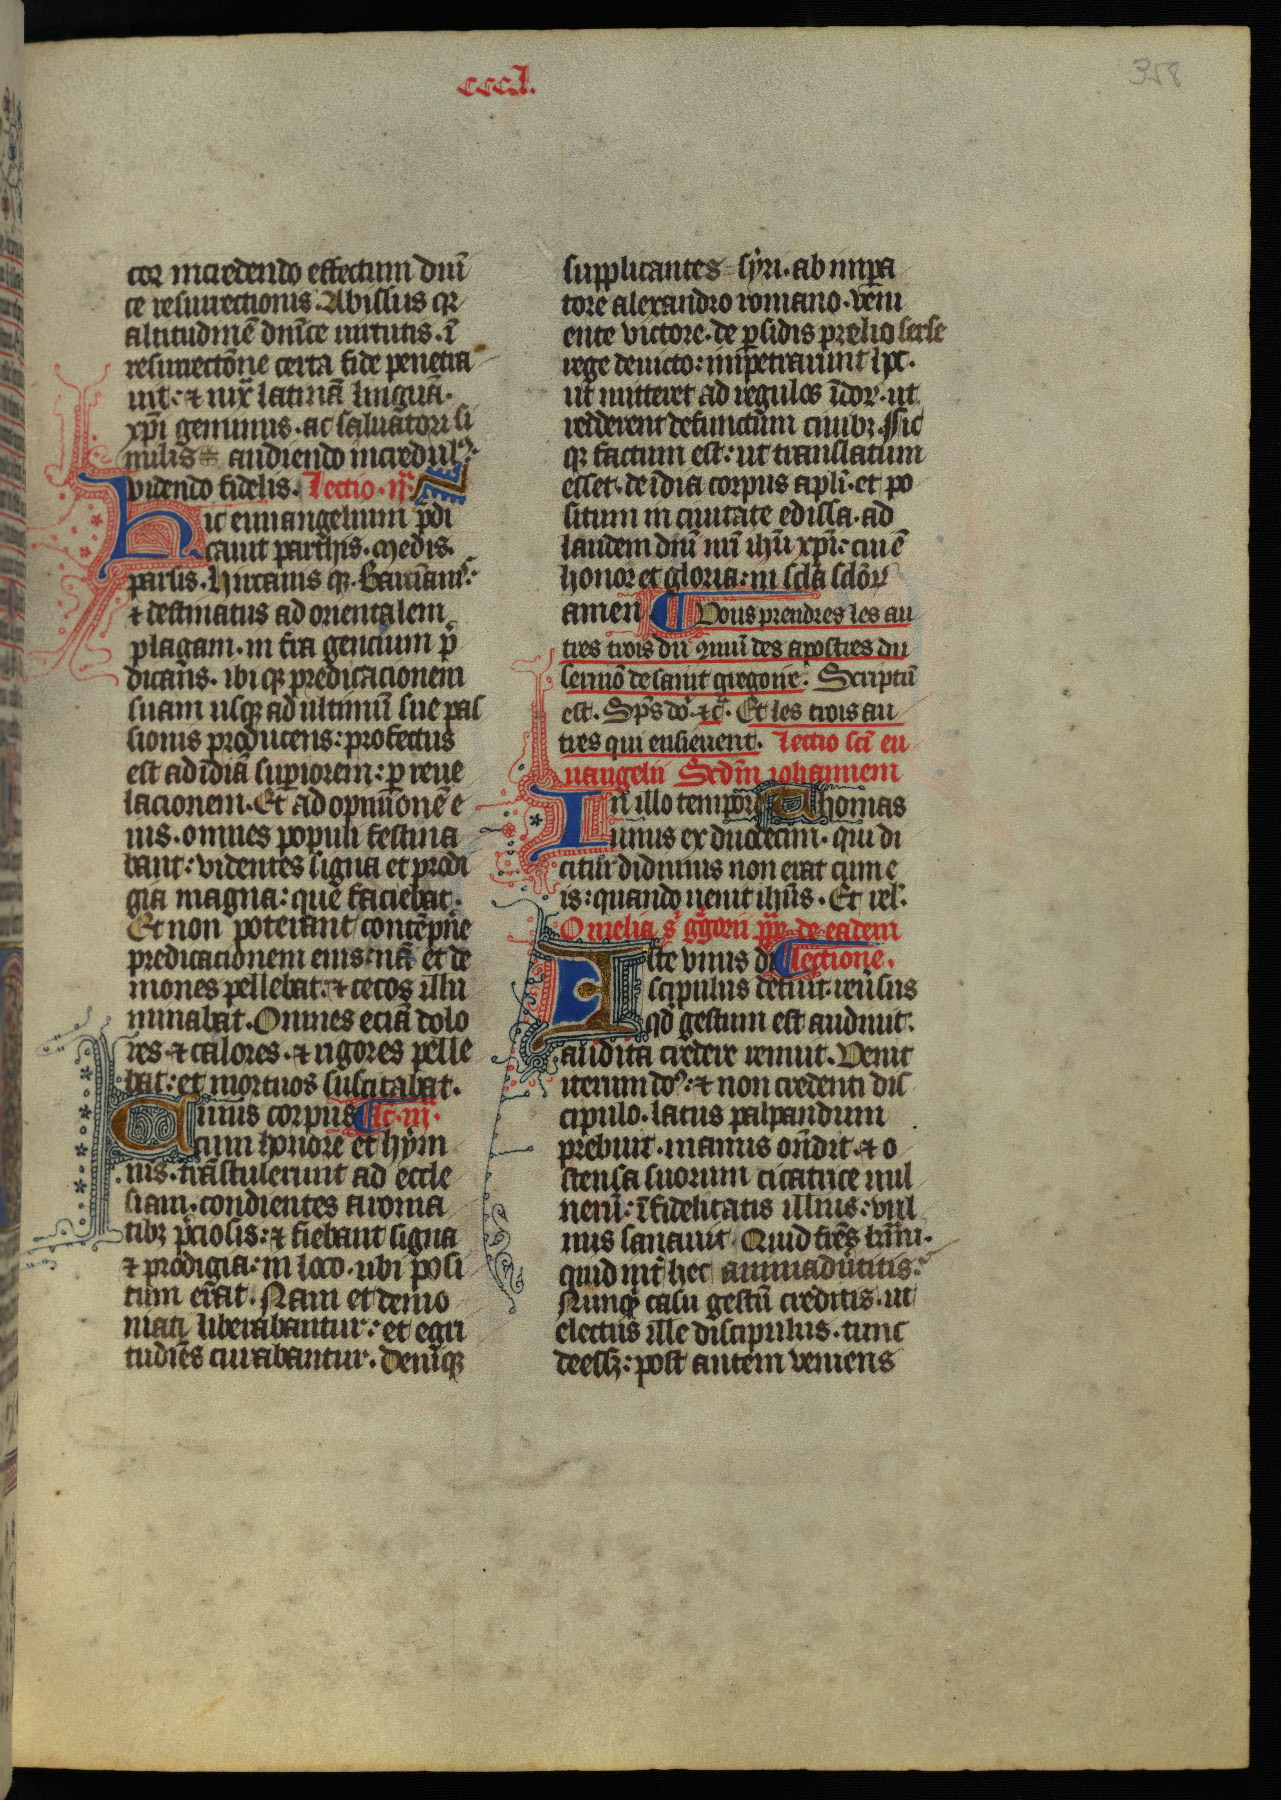 cccl.
358
cor incredendo effectum dnī
ce resurrectionis. Abissus qꝫ
altitudinē dnīce uirtutis. ī
resurrectōne certa fide penetra
uit: ⁊ iux̄ latinā linguā.
xp̄i geminus. ac saluatori si
milis = audiendo incredulꝰ.
videndo fidelis. Lectio .ii.ͣ
Hic euuangelium p̄di
cauit parthis. medis.
parsis. hircanis qꝫ.
⁊ destinatus ad orientalem
plagam. in t̄ra gencium p̄
dicans. ibi qꝫ predicacionem
suam usqꝫ ad ultimū sue pas
sionis producens: profectus
est ad īdiā superiorem: ꝑ reue
lacionem. Et ad opiniōnē e
ius. omnes populi festina
bant: videntes signa et prodi
gia magna: que faciebat.
Et non poterant contēpn̄e
predicacionem eius nā et de
mones pellebat: ⁊ cecos illu
minabat. Omnes eciā dolo
res. ⁊ calores. ⁊ rigores pelle
bat: et mortuos suscitabat.
Cuius corpus Lc̄. iii.
cum honore et hym
nis. trāstulerunt ad eccle
siam. condientes aroma
tibꝫ p̄ciosis: ⁊ fiebant signa
⁊ prodigia: in loco. ubi posi
tum erat. Nam et demo
niati liberabantur: et egri
tudīes curabantur. Deniqꝫ
supplicantes = syri. ab impa
tore alexandro romano. veni
ente victore. de ꝑsidis prelio serse
rege deuicto: impetrauunt hoc.
ut mitteret ad regulos īdoꝝ. ut
redderent defunctum ciuibꝫ. Sic
qꝫ factum est: ut translatum
esset. de īdia corpus apl̄i. et po
situm in ciuitate edissa. ad
laudem dn̄i nr̄i ihū xp̄i: cui ē
honor et gloria: in scl̄a scl̄oꝝ
amen Vous prendres les au
tres trois du cōmū des apostres du
sermō de saint gregoire. Scriptū
est. Sp̄s dō. ⁊c̄. Et les trois au
tres qui ensieuent. Lectio sc̄i eu
uangelii Scd̄m iohannem
In illo tempore Thomas
unus ex duodecim. qui di
citur didimus non erat cum e
is: quando uenit ihūs. Et rel.
Omelia s̄ ḡgorii pp̄e de eadem
Iste vnus di lectione.
scipulus defuit. reūsus
qd̄ gestum est audiuit.
audita credere renuit. Venit
iterum doꝰ: ⁊ non credenti dis
cipulo. latus palpandum
prebuit. manus on̄dit. ⁊ o
stensa suorum cicatrice uul
nerū: īfidelitatis illius: vul
nus sanauit. Quid fr̄es kr̄mi.
quid int̄ hec animadūtitis.
Nunqꝫ casu gestū creditis. ut
electus ille discipulus. tunc
deesset: post autem veniens